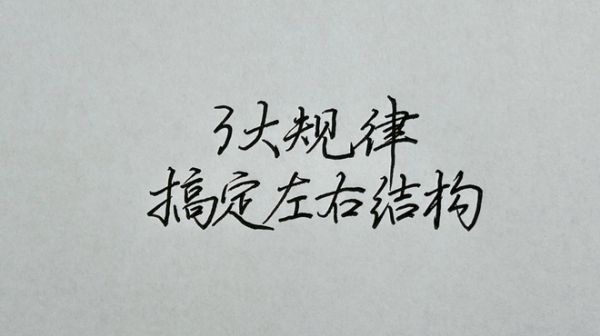 3大规律
搞定左右结构